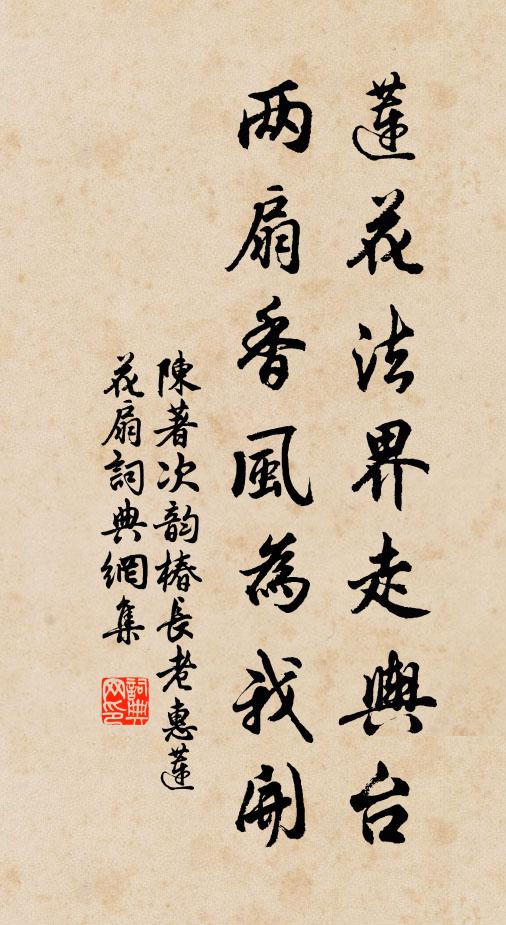 蓮花法界走輿台
两扇香風為我開
陳著次韵椿長老惠蓮
花扇詞典網集
詞典网印